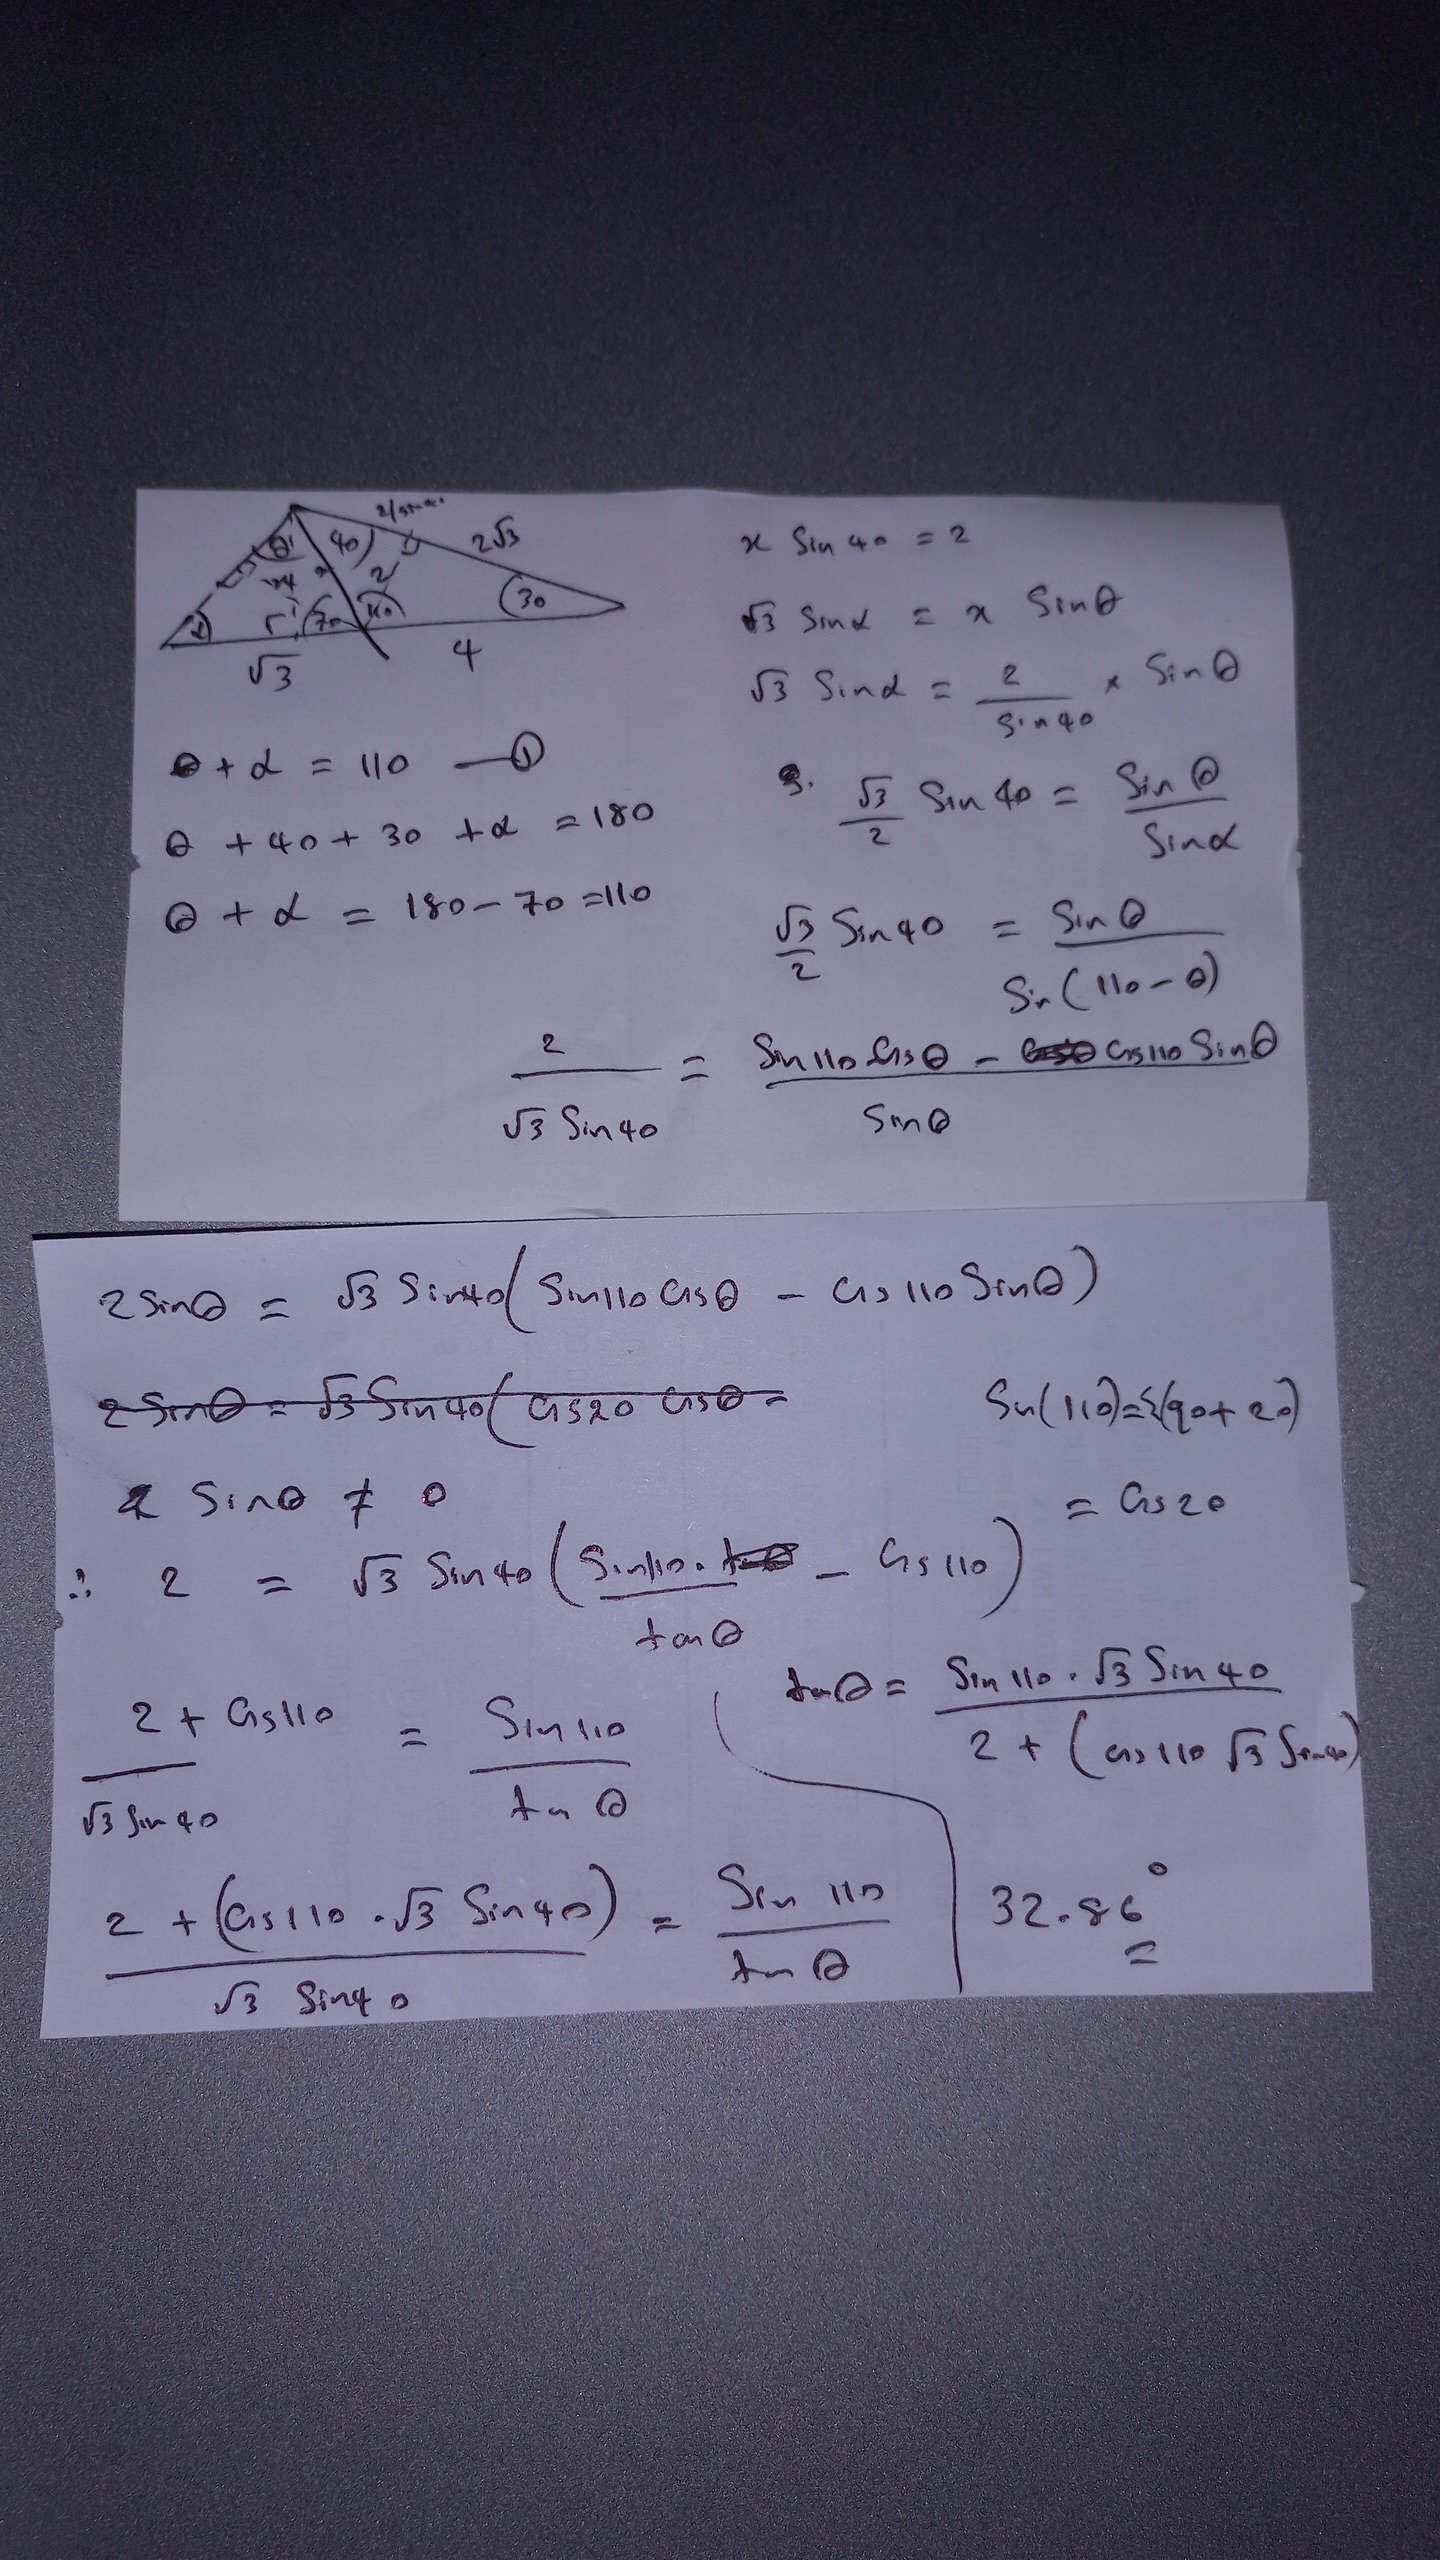 θ 40 2√3
x 2
α 70 110 30
√3 4
θ + α = 110 — ①
θ + 40 + 30 + α = 180
θ + α = 180 - 70 = 110
x Sin 40 = 2
√3 Sin α = x Sin θ
√3 Sin α = 2/Sin 40 × Sin θ
√3/2 Sin 40 = Sin θ/Sin α
√3/2 Sin 40 = Sin θ/Sin (110 - θ)
2/√3 Sin 40 = Sin 110 Cos θ - Cos 110 Sin θ/Sin θ
2 Sin θ = √3 Sin 40 (Sin 110 Cos θ - Cos 110 Sin θ)
2 Sin θ = √3 Sin 40 (Cos 20 Cos θ =
Sin (110) = S(90 + 20)
= Cos 20
Sin θ ≠ 0
∴ 2 = √3 Sin 40 (Sin 110/tan θ - Cos 110)
2/√3 Sin 40 + Cos 110 = Sin 110/tan θ
2 + (Cos 110 . √3 Sin 40)/√3 Sin 40 = Sin 110/tan θ
tan θ = Sin 110 . √3 Sin 40/2 + (Cos 110 √3 Sin 40)
32.86°